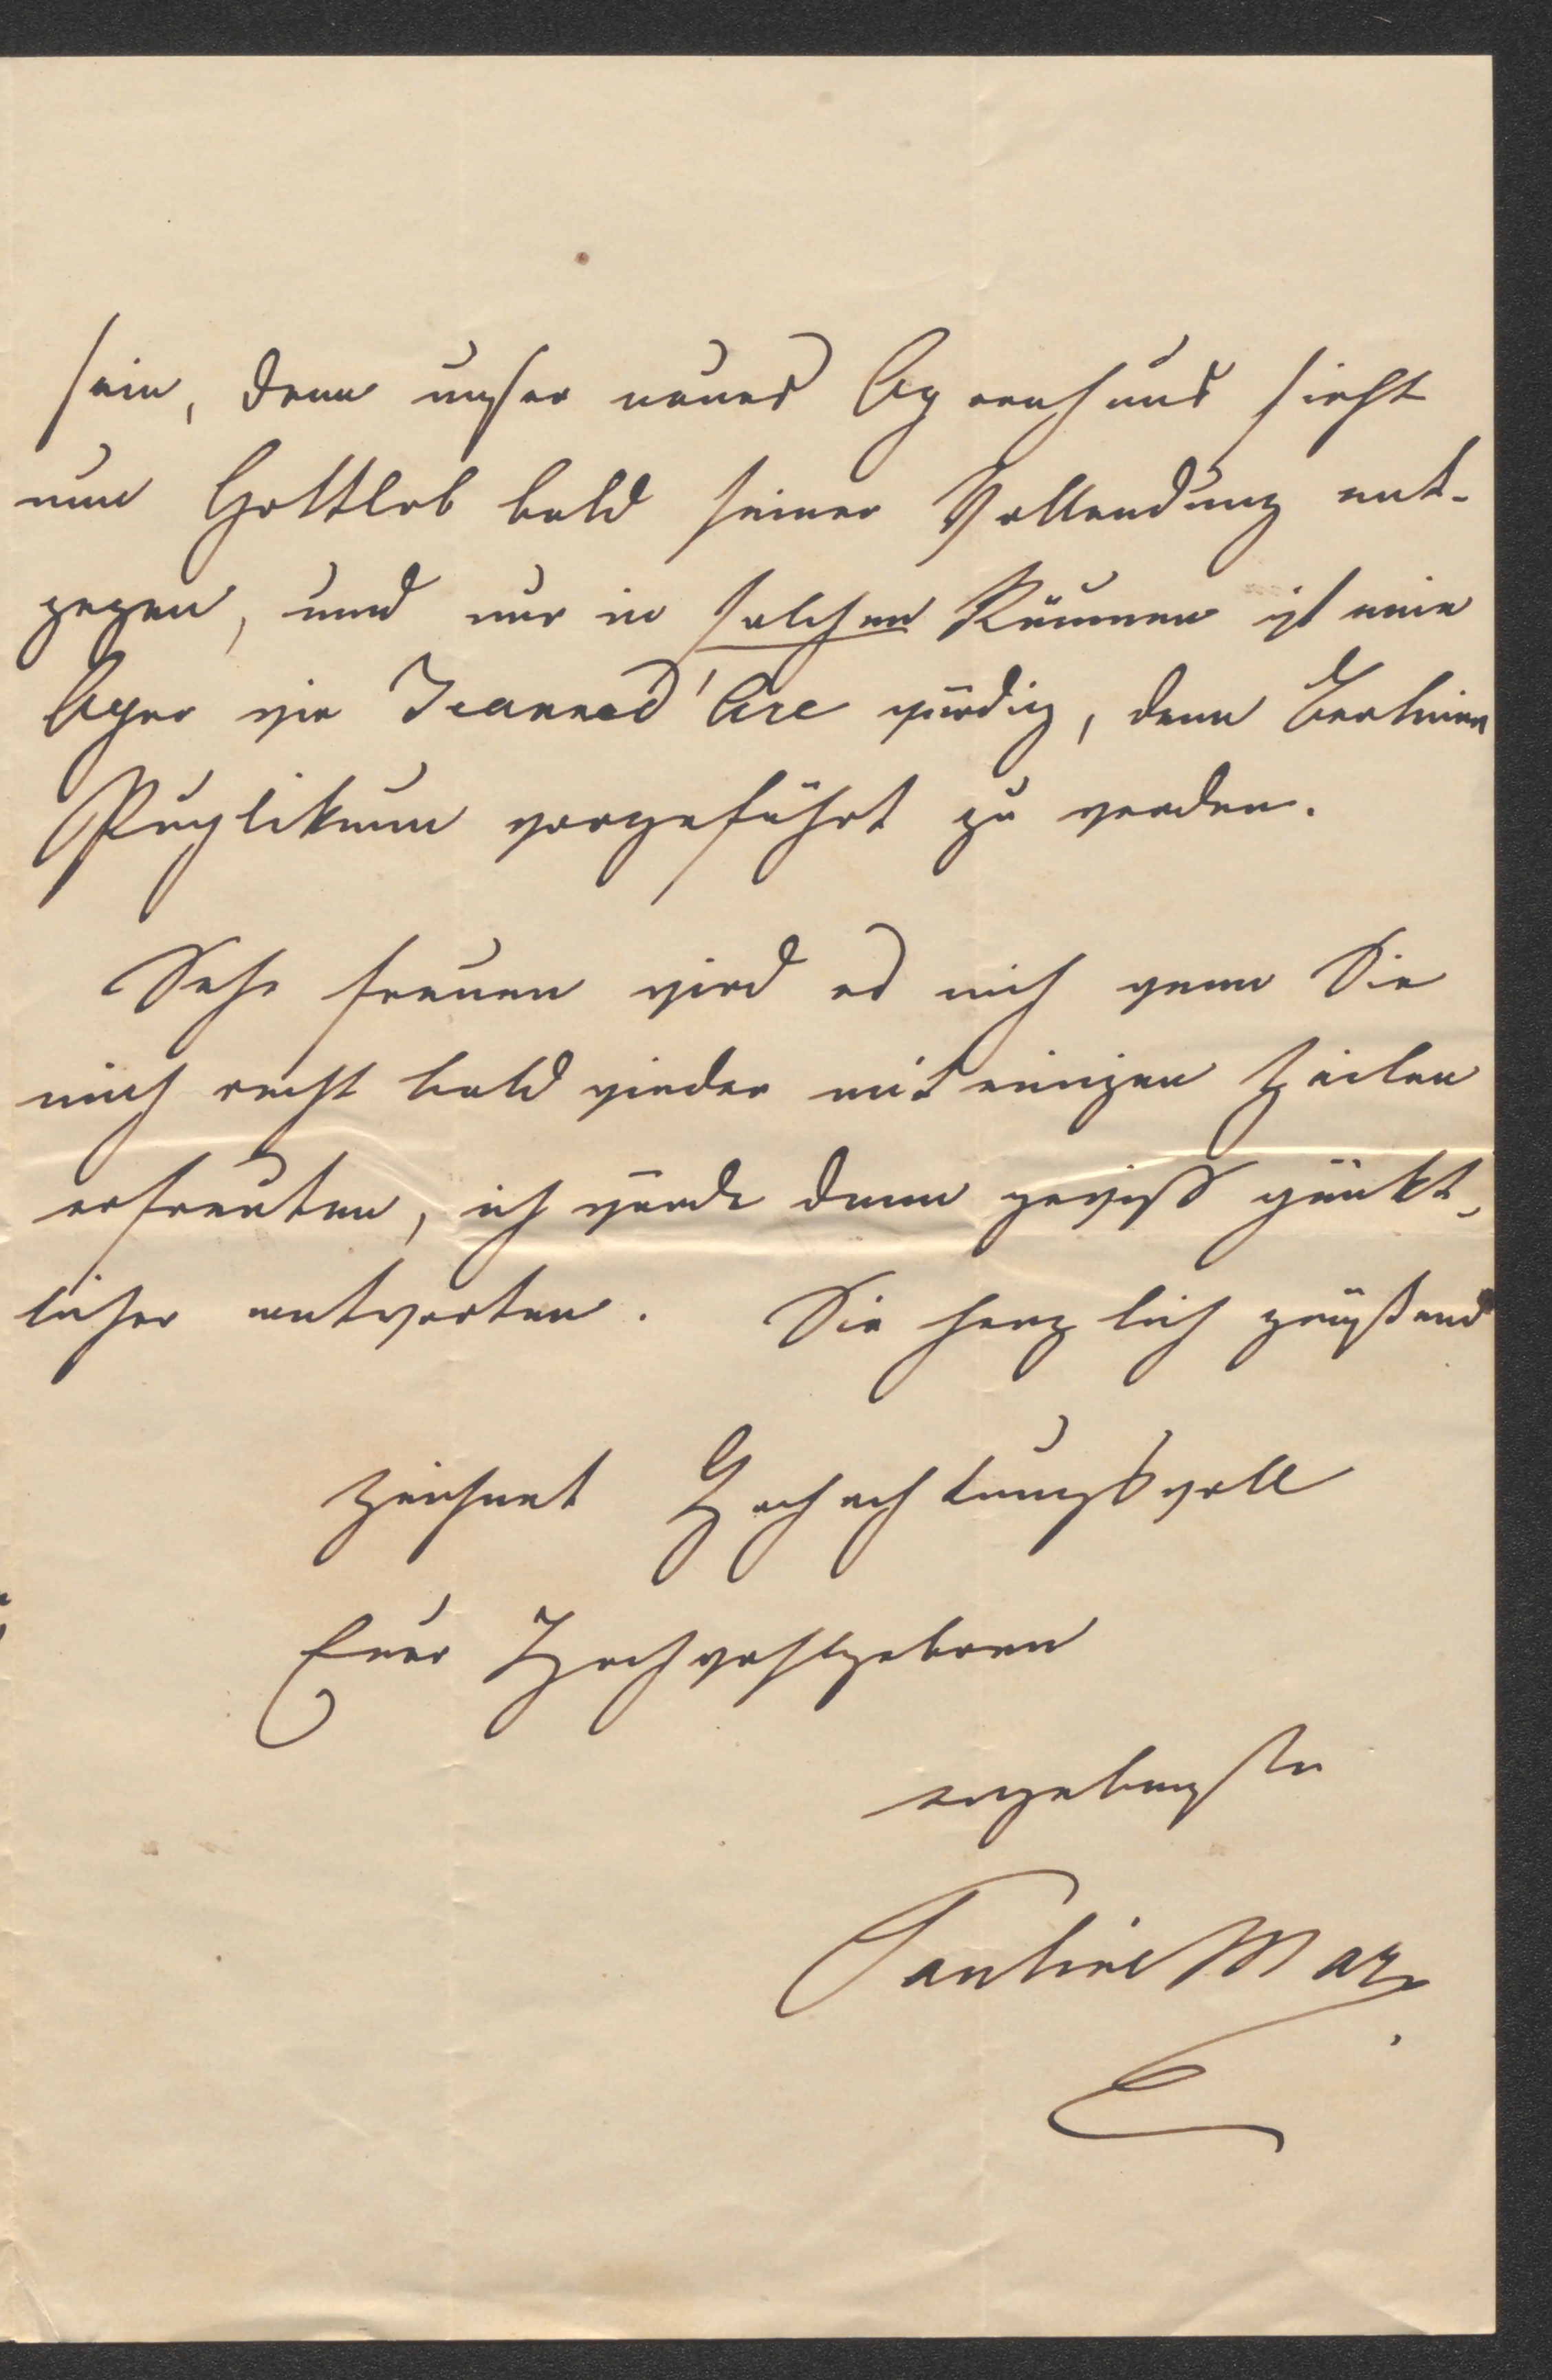 sein, denn unser neues Opernhaus sieht
nun Gottlob bald seiner Vollendung ent-
gegen, und nur in solchen Räumen ist eine
Oper wie Jeanne d'Arc würdig, dem Berliner
Puplikum vorgeführt zu werden.
Sehr freuen wird es mich wenn Sie
mich recht bald wieder mit einigen Zeilen
erfreuten, ich würde dann gewiß pünkt-
licher antworten. Sie herzlich grüßend
zeichnet Hochachtungsvoll
Euer Hochwohlgeboren
ergebenste
Pauline Marx